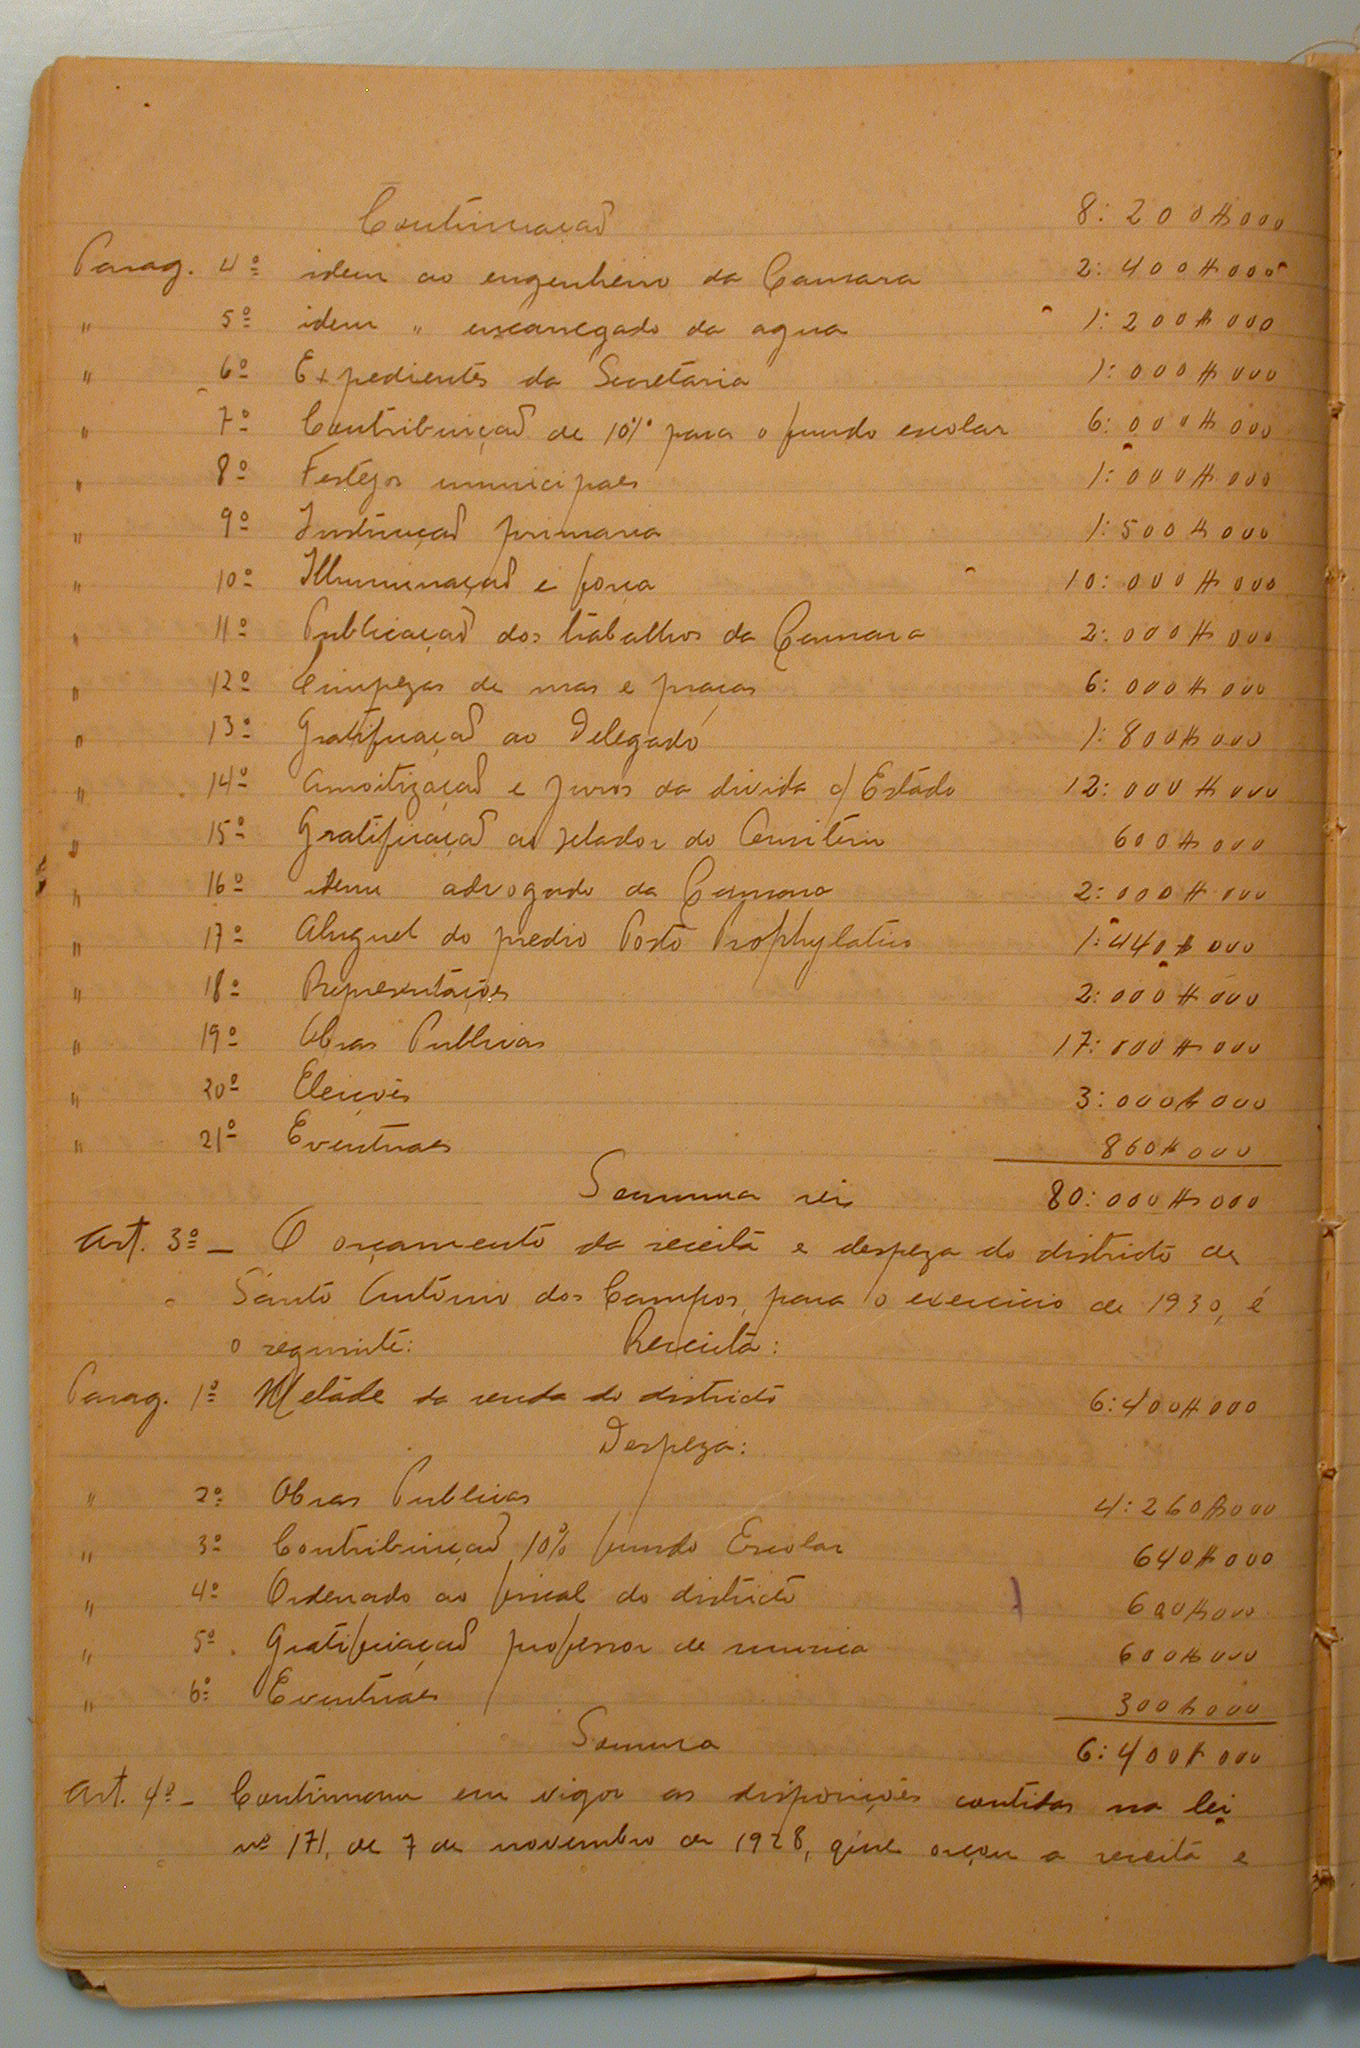 Continuação 8:200$000
Parag. 4º idem ao engenheiro da Camara 2:400$000
" 5º idem " encarregado da agua 1:200$000
" 6º Expedientes da Secretaria 1:000$000
" 7º Contribuição de 10% para o fundo escolar 6:000$000
" 8º Festejos municipaes 1:000$000
" 9º Instrucção primaria 1:500$000
" 10º Illuminação e força 10:000$000
" 11º Publicação dos trabalhos da Camara 2:000$000
" 12º Limpezas de ruas e praças 6:000$000
" 13º Gratificação ao Delegado 1:800$000
" 14º Amortização e juros da divida c/ Estado 12:000$000
" 15º Gratificação ao zelador do Cemiterio 600$000
" 16º idem advogado da Camara 2:000$000
" 17º Aluguel do predio Posto Prophylatico 1:440$000
" 18º Representações 2:000$000
" 19º Obras Publicas 17:000$000
" 20º Eleições 3:000$000
" 21º Eventuaes 860$000
Somma reis 80:000$000
Art. 3º – O orçamento da receita e despeza do districto de
Santo Antonio dos Campos, para o exercicio de 1930, é
o seguinte: Receita:
Parag. 1º Metade da renda do districto 6:400$000
Despeza:
" 2º Obras Publicas 4:260$000
" 3º Contribuição 10% fundo Escolar 640$000
" 4º Ordenado ao fiscal do districto 600$000
" 5º Gratificação professor de musica 600$000
" 6º Eventuaes 300$000
Somma 6:400$000
Art. 4º – Continuam em vigor as disposições contidas na lei
nº 171, de 7 de novembro de 1928, que orçou a receita e